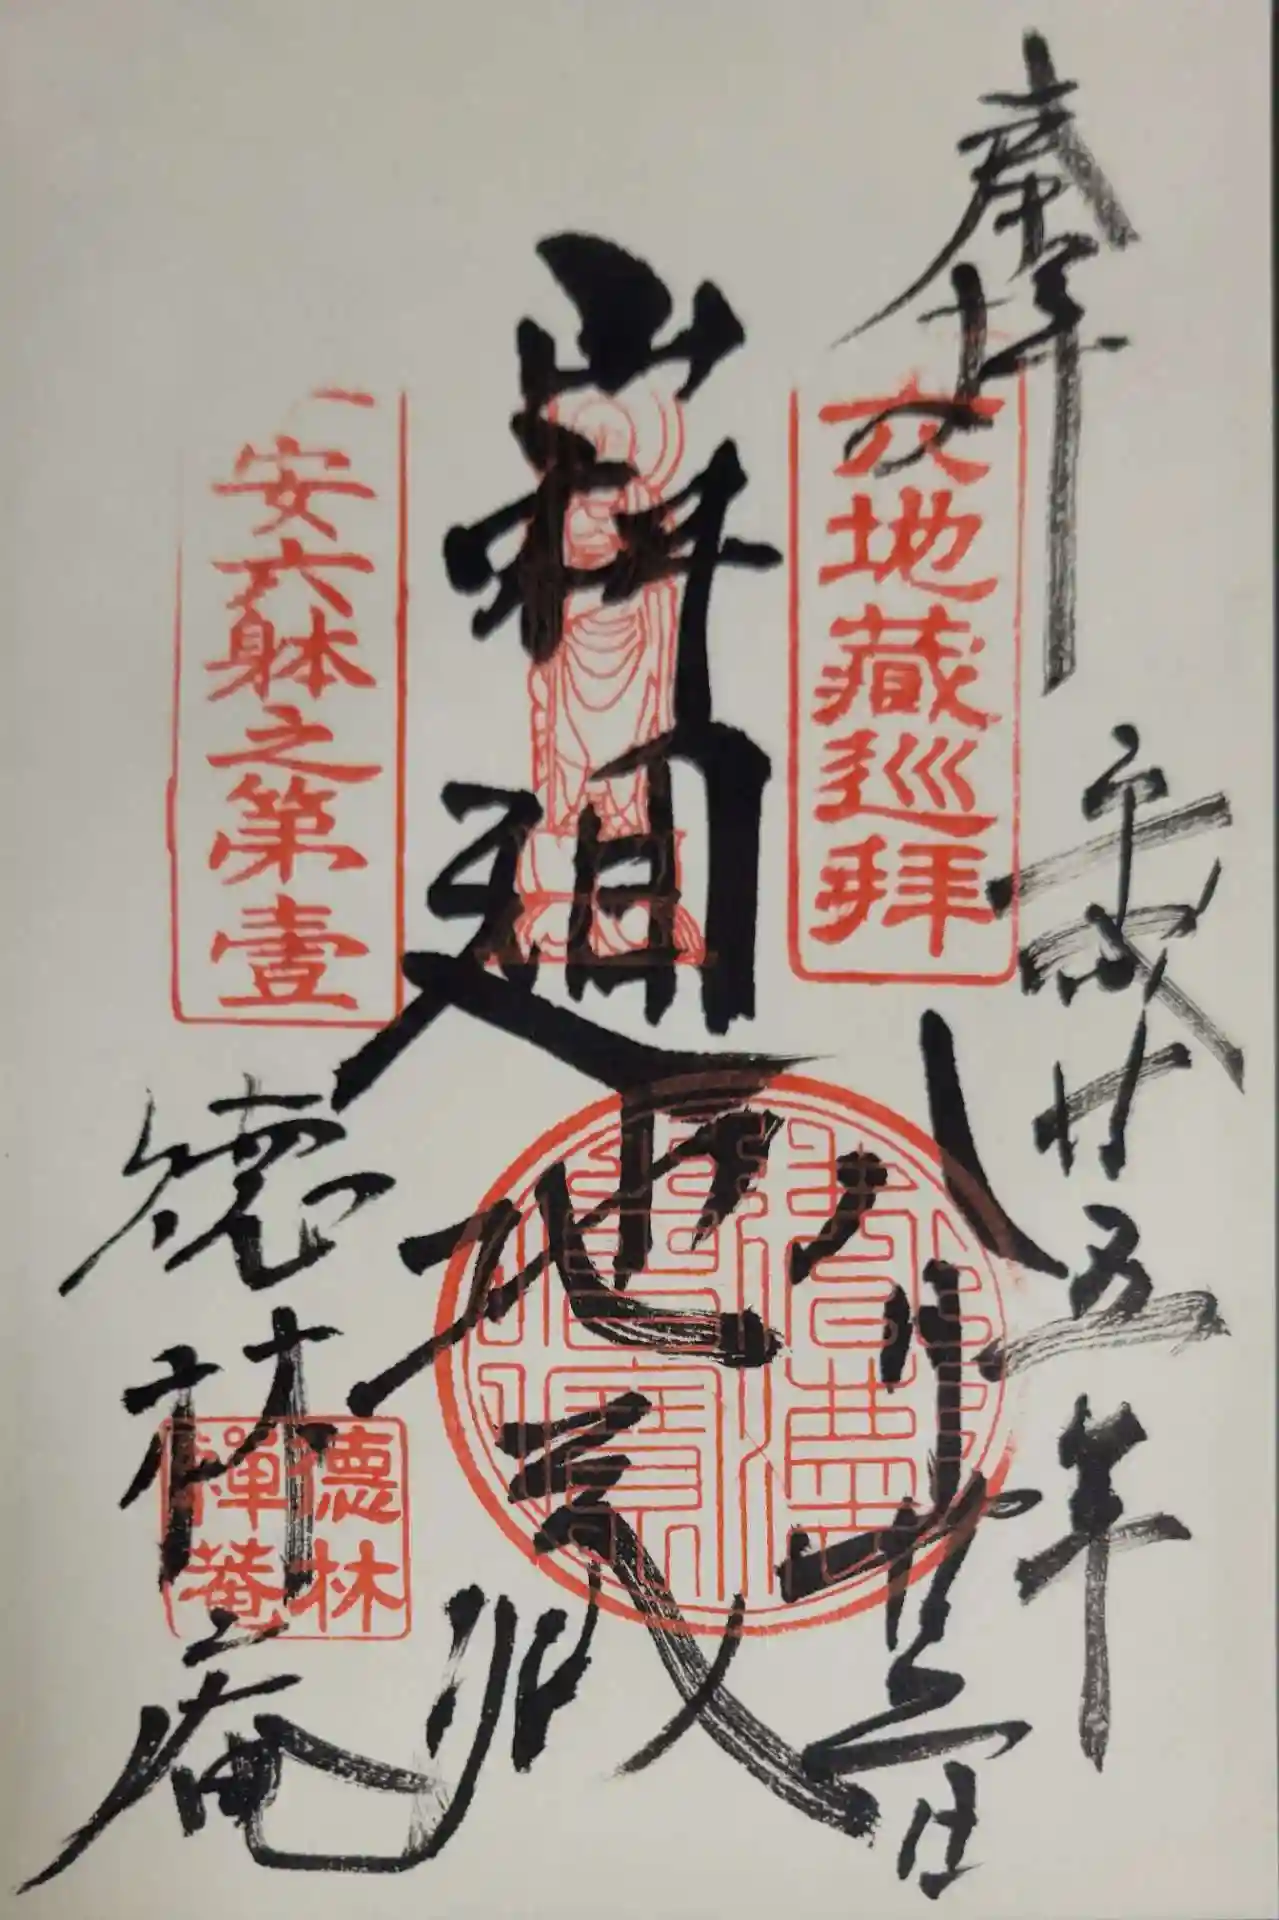 奉拝
平成廿五年
八月廿二日
六地藏巡拜
山科廻地蔵
一安六躰之第壹
德林庵
德林
禅菴